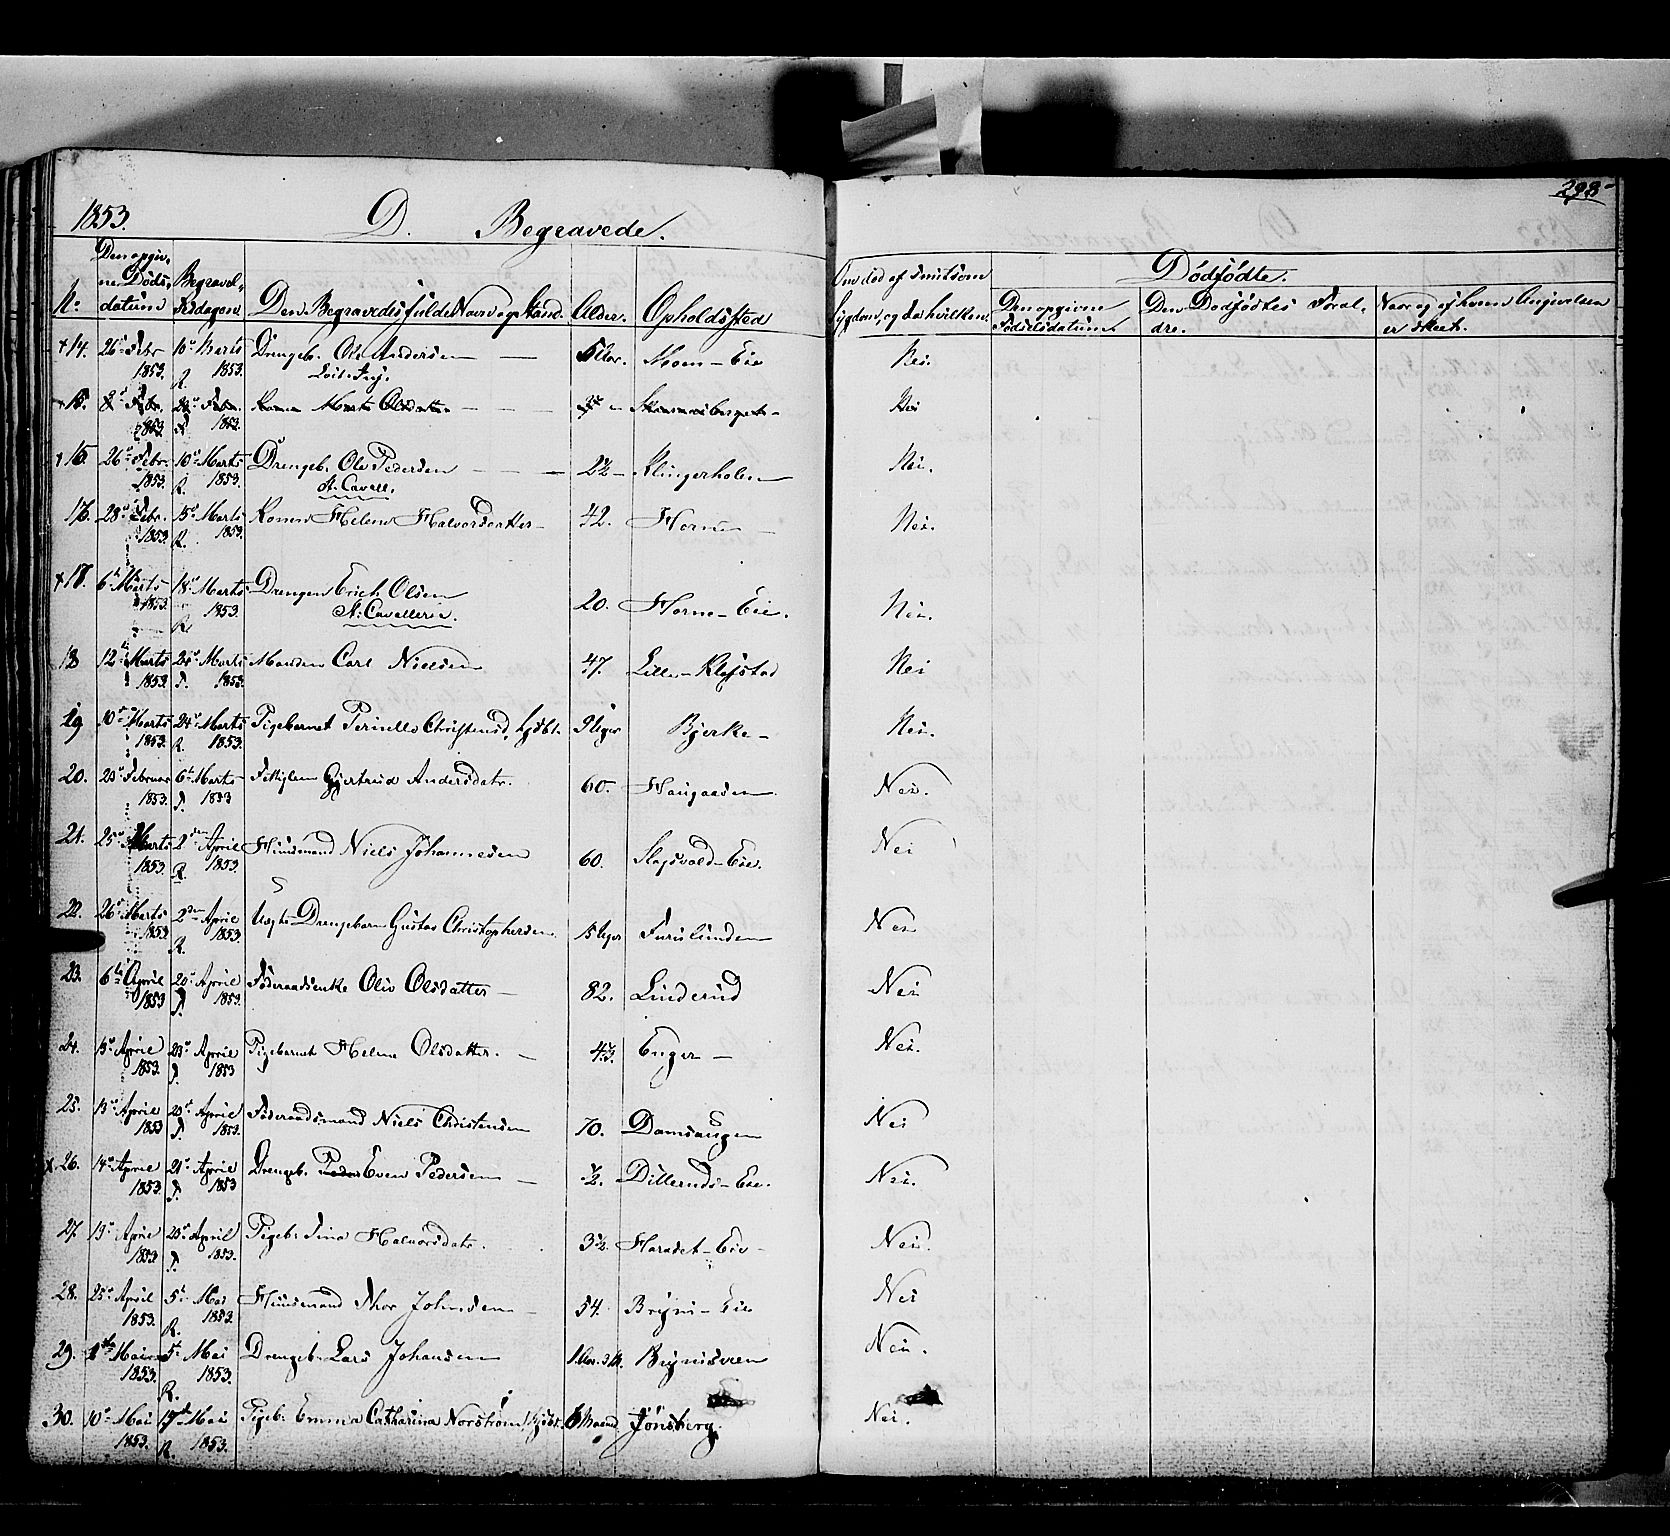 298
1853. D. Begravede.
Den opgivne Dødsdatum
Begravelsesdagen
No
Den Begravedes fulde Navn og Stand.
Alder.
Opholdsted
Om død af smitsom Sygdom, og da hvilken.
Dødfødte.
Den opgivne Fødselsdatum.
Den Dødfødtes Foraldre.
Naar og af hvem Angivelsen er skeet.
+14. 26 Febr 1853. 10 Marts R. 1853. Drengeb. Ole Andersen Moen-Eie Nei.
15. Febr. 1853 Febr. 1853. Konen Olsdatter Nei
15. 26 Febr. 1853. 10 Marts R. 1853. Drengeb. Ole Pedersen 2½ Klingerholen Nei.
St. Cavall.
16. 28 Febr. 1853. 15 Marts R. 1853. Konen Helene Halvorsdatter 42. Horne Nei.
+17. 6 Marts 1853. 18 Marts R. 1853 Drengen Erich Olsen 20. Horne-Eie. Nei.
St. Cavalleri.
18 12 Marts 1853. Marts 1853. Manden Carl Nielsen 47. Lille-Klæstad Nei
19 10 Marts 1853. 24 Marts R. 1853. Pigebarnet Pernelle 9 Uger Bjerke Nei.
20. 25 Februar 1853. 6 Marts 1853 Gjertrud Andersdatr. 60. Haugaasen Nei.
21. 25 Marts 1853. 2den April R. 1853. Huusmand Niels Johannesen 60. Slagsvold-Eie. Nei
22. 26 Marts 1853. 2den April R. 1853. Uægte Drengebarn Gustav Christophersen 15 Uger Furulunden Nei
23. 6 April 1853 20 April 1853. Føderaadsenke Olio Olsdatter 82. Linderud Nei
24. 13 April 1853. 23 April 1853 Pigebarnet Helene Olsdatter. Enger Nei.
25. 13 April 1853 23 April 1853. Føderaadsmand Niels Christensen 70. Damsaugen Nei
26. 14 April 1853. 21 April 1853 Drengb. Even Pedersen ½. Dillerud-Eie. Nei.
27. 19 April 1853. 23 April 1853. Pigeb. Tina Halvorsdatr. 3½. Haradet-Eie Nei.
28. 25 April 1853. 5 Mai R. 1853. Huusmand Thor Johnsen 54. Bryni-Eie Nei
29. 1 Mai 1853. 5 Mai R. 1853. Drengeb. Lars Johansen Brynisveen Nei.
30. 10 Mai 1853. 17 Mai R. 1853. Pigeb. Emma Catharina Norström 6 Maaned Jönsberg. Nei.